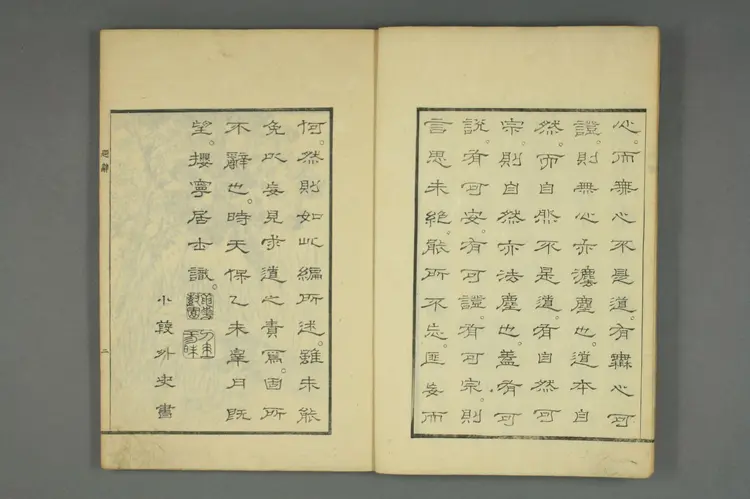 心。而無心不是道。有無心可
證。則無心亦瀍塵也。道本自
然。而自然不是道。有自然可
宗。則自然亦法塵也。蓋有可
說。有可安。有可證。有可宗。則
言思未絕。能所不忘。匪妄而
何。然則如此編所述。雖未能
免以妄見求道之責焉。固所
不辭也。時天保乙未辜月既
望。攖寧居士識。
小竣外史書
題辭
二